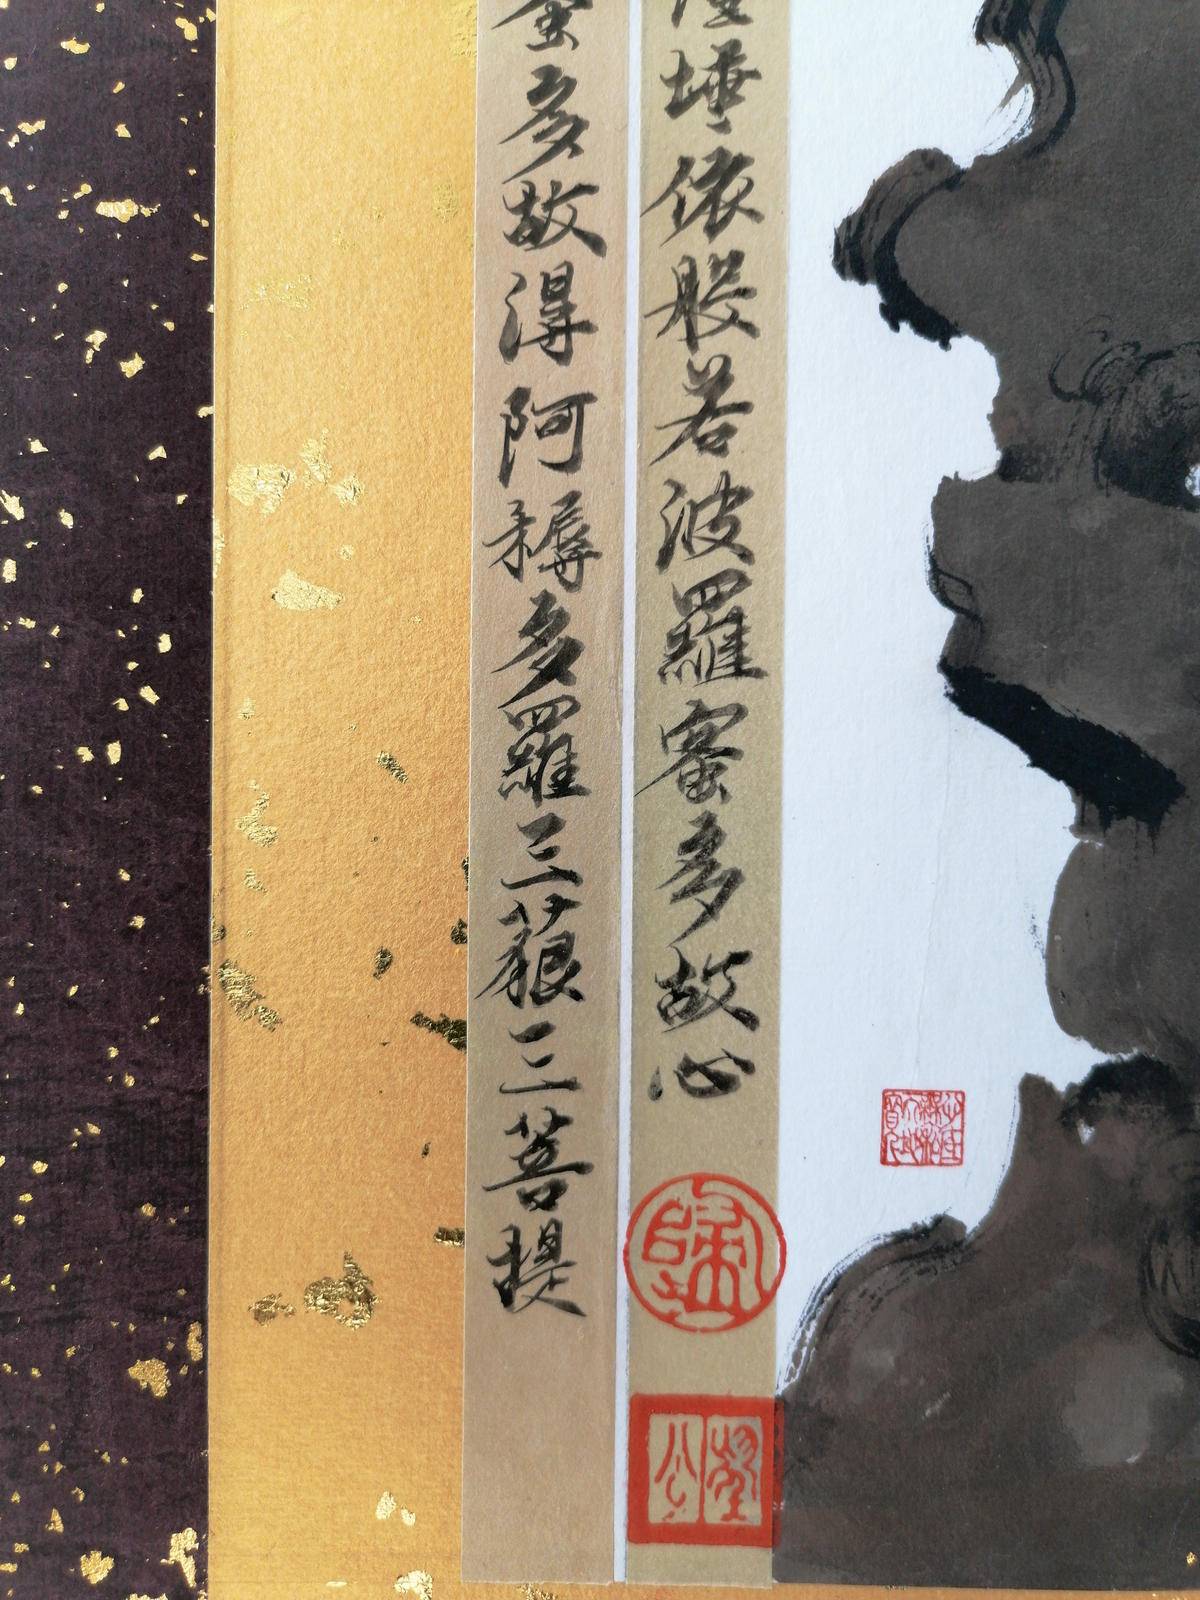 埵依般若波羅蜜多故心
蜜多故得阿耨多羅三藐三菩提